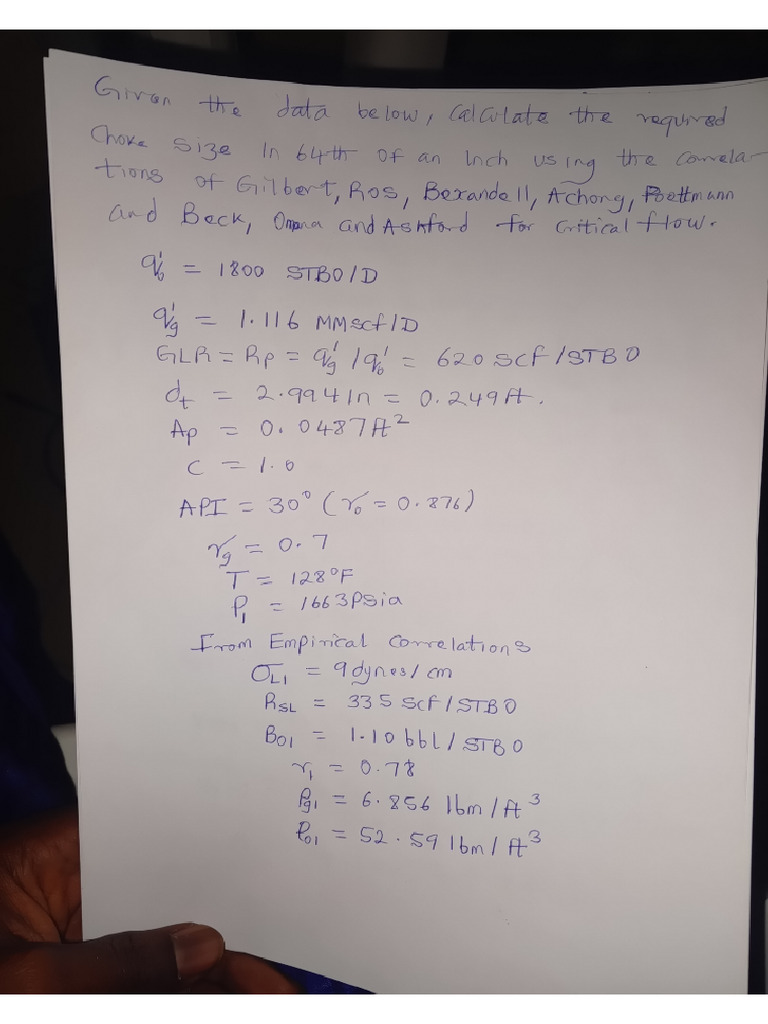 Given the data below, Calculate the required
Choke size in 64th of an Inch using the Correla-
tions of Gilbert, Ros, Bexandell, Achong, Poettmann
and Beck, Omana and Ashford for Critical flow.
q'o = 1800 STBO/D
q'g = 1.116 MMscf/D
GLR = Rp = q'g / q'o = 620 SCF/STBO
dt = 2.994 In = 0.249 ft.
Ap = 0.0487 ft²
C = 1.0
API = 30° (γo = 0.876)
γg = 0.7
T = 128°F
P1 = 1663 Psia
From Empirical Correlations
σL1 = 9 dynes/cm
RSL = 335 SCF/STBO
BO1 = 1.10 bbl/STBO
r1 = 0.78
ρg1 = 6.856 lbm/ft³
ρo1 = 52.59 lbm/ft³